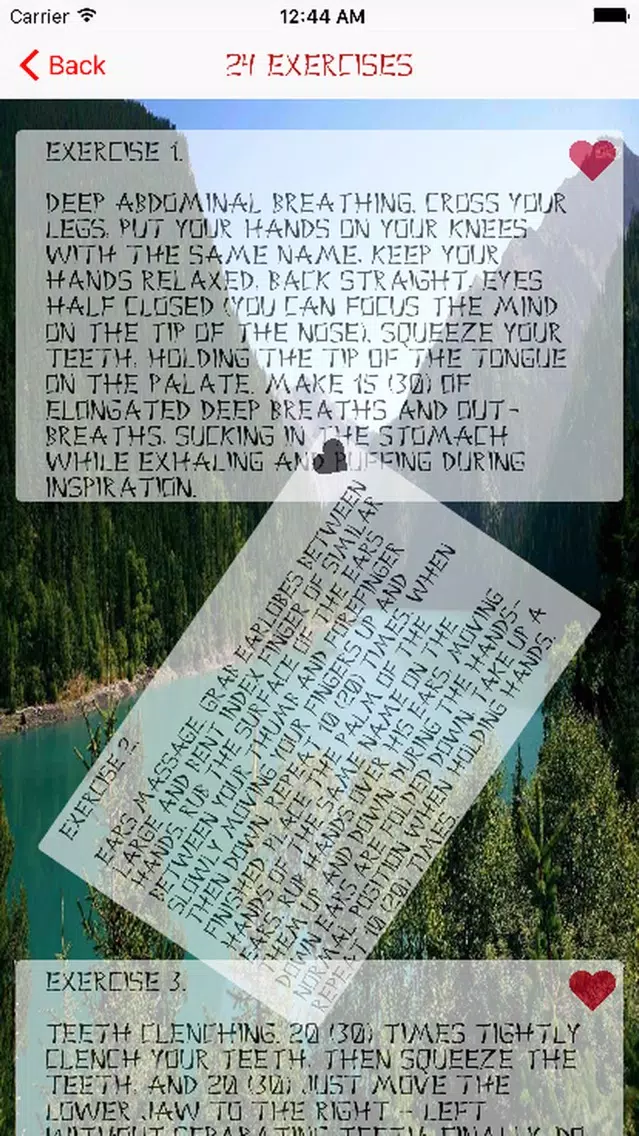 Carrier 12:44 AM
Back 24 EXERCISES
EXERCISE 1.
DEEP ABDOMINAL BREATHING. CROSS YOUR
LEGS. PUT YOUR HANDS ON YOUR KNEES
WITH THE SAME NAME. KEEP YOUR
HANDS RELAXED, BACK STRAIGHT, EYES
HALF CLOSED (YOU CAN FOCUS THE MIND
ON THE TIP OF THE NOSE). SQUEEZE YOUR
TEETH, HOLDING THE TIP OF THE TONGUE
ON THE PALATE. MAKE 15 (30) OF
ELONGATED DEEP BREATHS AND OUT-
BREATHS, SUCKING IN THE STOMACH
WHILE EXHALING AND PUFFING DURING
INSPIRATION.
EXERCISE 2.
EARS MASSAGE. GRAB EARLOBES BETWEEN
LARGE AND BENT INDEX FINGER OF SIMILAR
HANDS. RUB THE SURFACE OF THE EARS
BETWEEN YOUR THUMB AND FOREFINGER
SLOWLY MOVING YOUR FINGERS UP AND
THEN DOWN. REPEAT 10 (20) TIMES. WHEN
FINISHED PLACE THE PALM OF THE
HANDS OF THE SAME NAME ON THE
EARS. RUB HANDS OVER HIS EARS, MOVING
THEM UP AND DOWN. DURING THE HANDS-
DOWN EARS ARE FOLDED DOWN, TAKE UP A
NORMAL POSITION WHEN HOLDING HANDS.
REPEAT 10 (20) TIMES.
EXERCISE 3.
TEETH CLENCHING. 20 (30) TIMES TIGHTLY
CLENCH YOUR TEETH, THEN SQUEEZE THE
TEETH, AND 20 (30) JUST MOVE THE
LOWER JAW TO THE RIGHT - LEFT
WITHOUT SEPARATING TEETH. FINALLY, DO